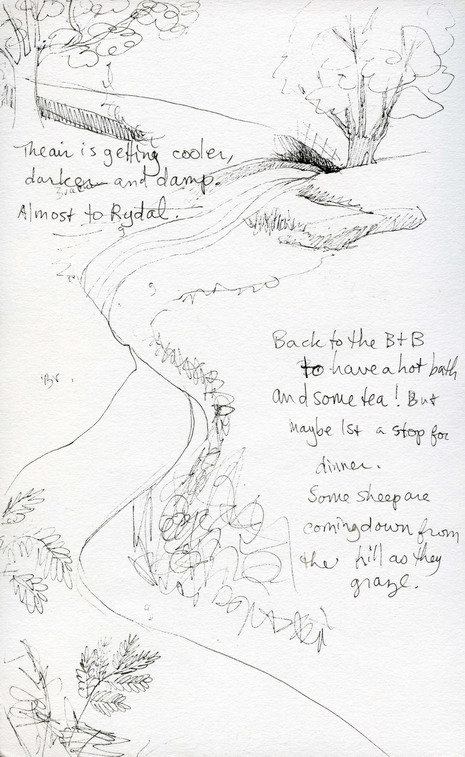 The air is getting cooler,
darker and damp.
Almost to Rydal.
Back to the B+B
to have a hot bath
and some tea! But
maybe 1st a stop for
dinner.
Some sheep are
coming down from
the hill as they
graze.